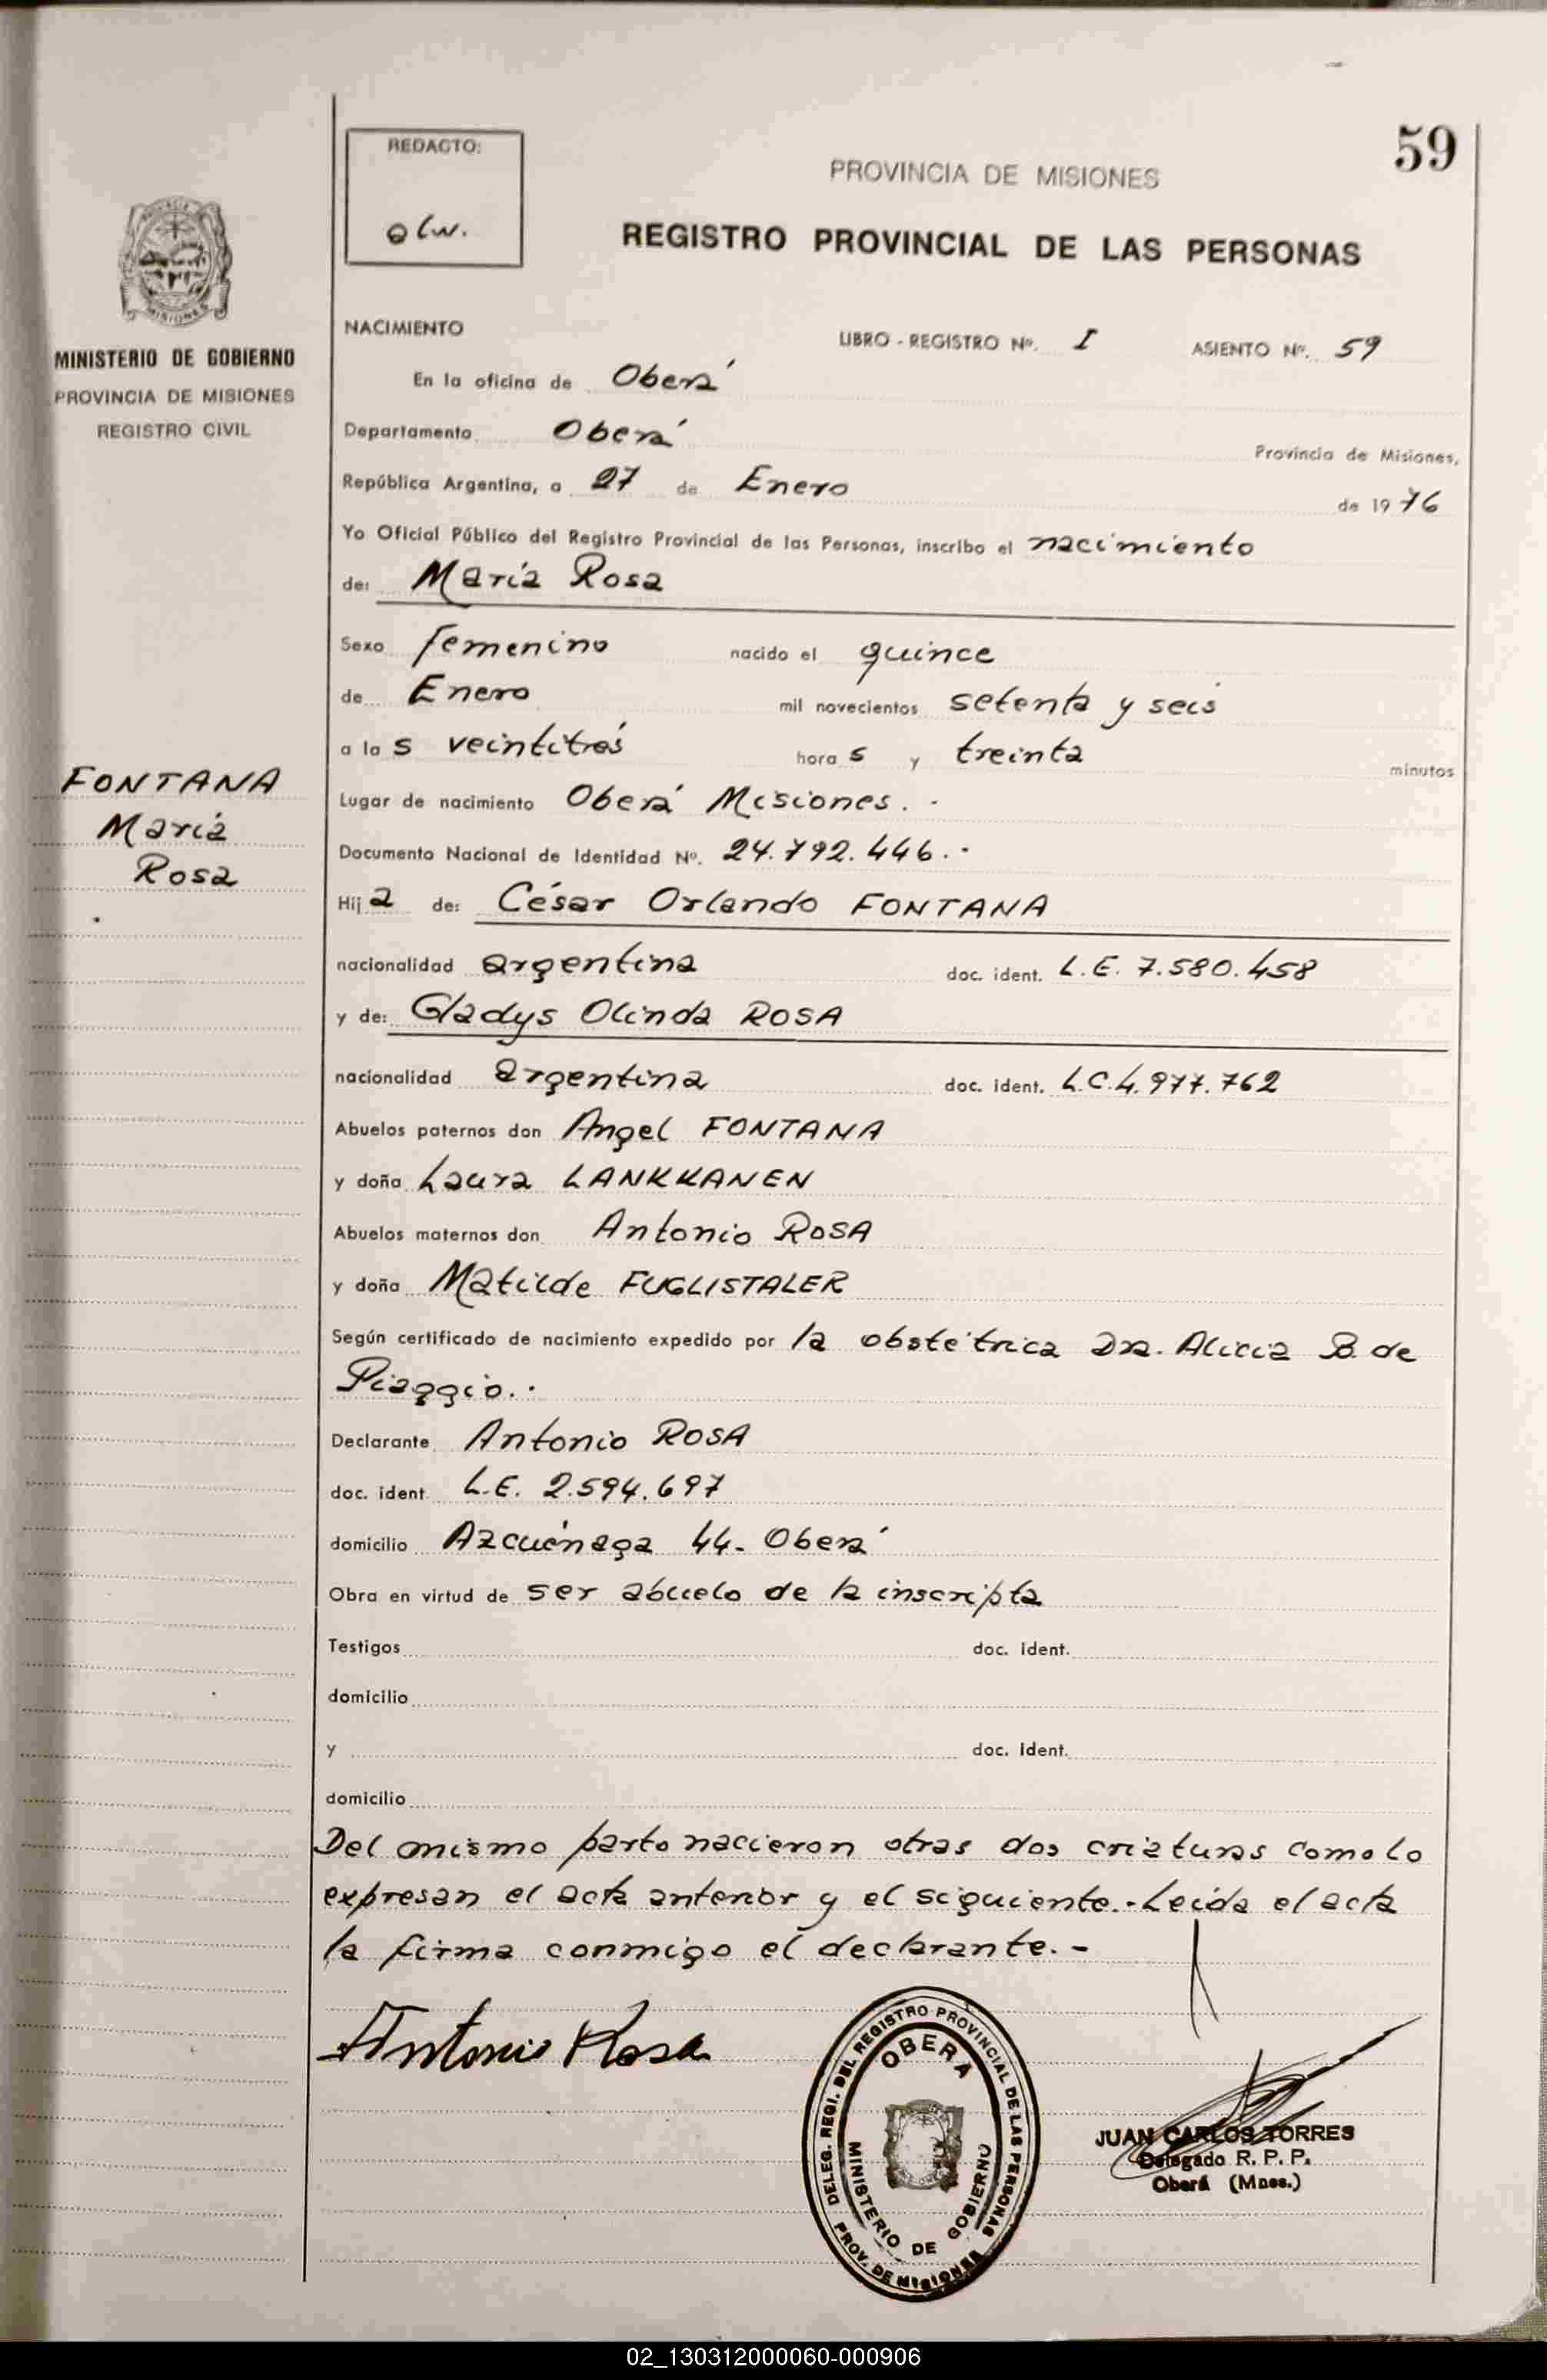 59
REDACTO:
olw.
PROVINCIA DE MISIONES
REGISTRO PROVINCIAL DE LAS PERSONAS
MINISTERIO DE GOBIERNO
PROVINCIA DE MISIONES
REGISTRO CIVIL
FONTANA
María
Rosa
NACIMIENTO LIBRO - REGISTRO Nº. I ASIENTO Nº. 59
En la oficina de Oberá
Departamento Oberá Provincia de Misiones,
República Argentina, a 27 de Enero de 1976
Yo Oficial Público del Registro Provincial de las Personas, inscribo el nacimiento
de: María Rosa
Sexo femenino nacido el quince
de Enero mil novecientos setenta y seis
a las veintitrés horas y treinta minutos
Lugar de nacimiento Oberá Misiones. -
Documento Nacional de Identidad Nº. 24.792.446.-
Hija de: César Orlando FONTANA
nacionalidad argentina doc. ident. L.E. 7.580.458
y de: Gladys Olinda ROSA
nacionalidad argentina doc. ident. L.C.4.977.762
Abuelos paternos don Angel FONTANA
y doña Laura LANKKANEN
Abuelos maternos don Antonio ROSA
y doña Matilde FUGLISTALER
Según certificado de nacimiento expedido por la obstétrica Dra. Alicia B. de
Piaggio.-
Declarante Antonio ROSA
doc. ident. L.E. 2.594.697
domicilio Azcuénaga 44- Oberá
Obra en virtud de ser abuelo de la inscripta
Testigos doc. ident.
domicilio
y doc. ident.
domicilio
Del mismo parto nacieron otras dos criaturas como lo
expresan el acta anterior y el siguiente.- Leída el acta
la firma conmigo el declarante.-
Antonio Rosa
DELEG. REGI. DEL REGISTRO PROVINCIAL DE LAS PERSONAS
OBERA
MINISTERIO DE GOBIERNO
PROV. DE MISIONES
JUAN CARLOS TORRES
Delegado R. P. P.
Oberá (Mnes.)
02_130312000060-000906